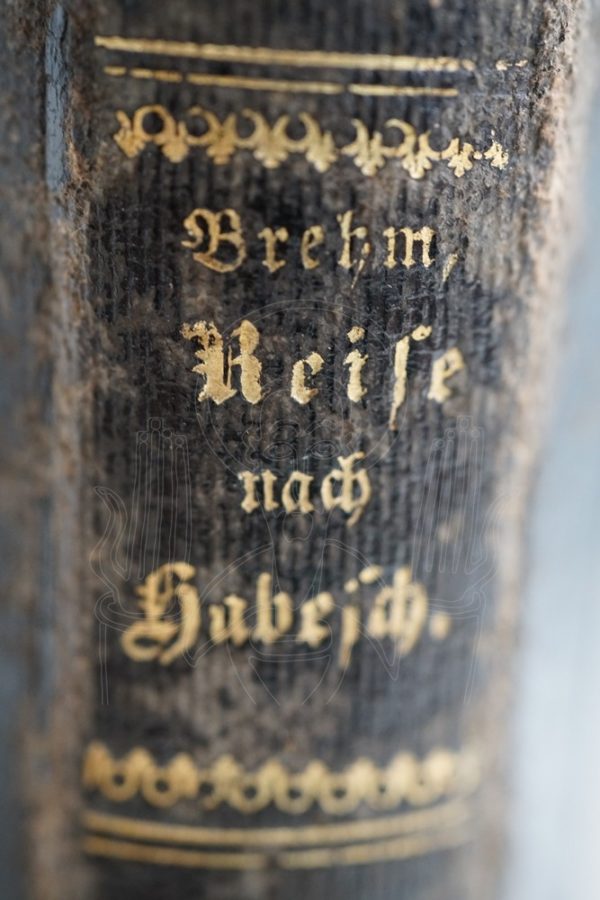 Brehm,
Reiſe
nach
Habeſch.